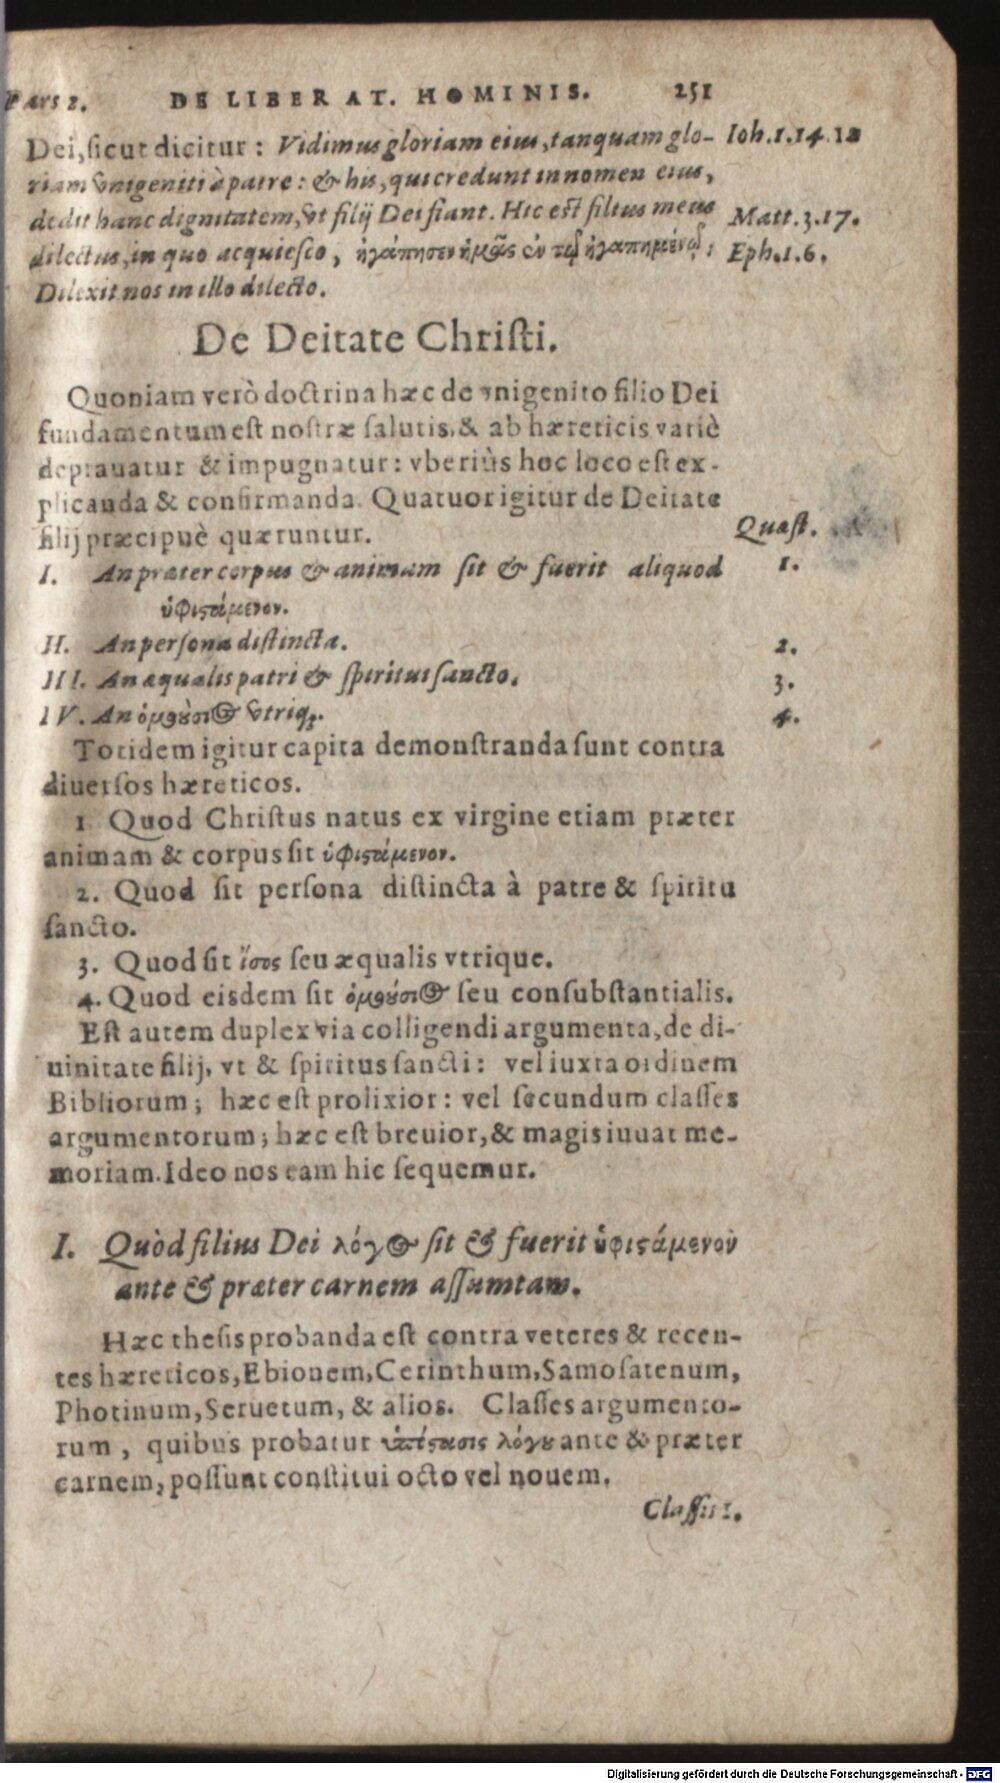 Pars 2. DE LIBERAT. HOMINIS. 251
Dei, sicut dicitur: Vidimus gloriam eius, tanquam glo- Ioh.1.14.12
riam vnigeniti à patre: & his, qui credunt in nomen eius,
dedit hanc dignitatem, vt filij Dei fiant. Hic est filius meus Matt.3.17.
dilectus, in quo acquiesco, ἠγάπησεν ἡμᾶς ἐν τῷ ἠγαπημένῳ: Eph.1.6.
Dilexit nos in illo dilecto.
De Deitate Christi.
Quoniam verò doctrina hæc de vnigenito filio Dei
fundamentum est nostræ salutis, & ab hæreticis variè
deprauatur & impugnatur: vberiùs hoc loco est ex-
plicanda & confirmanda. Quatuor igitur de Deitate
filij præcipuè quæruntur. Quæst.
I. An præter corpus & animam sit & fuerit aliquod 1.
ὑφιςάμενον.
II. An persona distincta. 2.
III. An æqualis patri & spiritui sancto. 3.
IV. An ὁμοούσιος vtriq;. 4.
Totidem igitur capita demonstranda sunt contra
diuersos hæreticos.
1 Quod Christus natus ex virgine etiam præter
animam & corpus sit ὑφιςάμενον.
2. Quod sit persona distincta à patre & spiritu
sancto.
3. Quod sit ἴσος seu æqualis vtrique.
4. Quod eisdem sit ὁμοούσιος seu consubstantialis.
Est autem duplex via colligendi argumenta, de di-
uinitate filij, vt & spiritus sancti: vel iuxta ordinem
Bibliorum; hæc est prolixior: vel secundum classes
argumentorum; hæc est breuior, & magis iuuat me-
moriam. Ideo nos eam hic sequemur.
I. Quòd filius Dei λόγος sit & fuerit ὑφιςάμενον
ante & præter carnem assumtam.
Hæc thesis probanda est contra veteres & recen-
tes hæreticos, Ebionem, Cerinthum, Samosatenum,
Photinum, Seruetum, & alios. Classes argumento-
rum, quibus probatur ὑπόςασις λόγου ante & præter
carnem, possunt constitui octo vel nouem.
Classis 1.
Digitalisierung gefördert durch die Deutsche Forschungsgemeinschaft - DFG